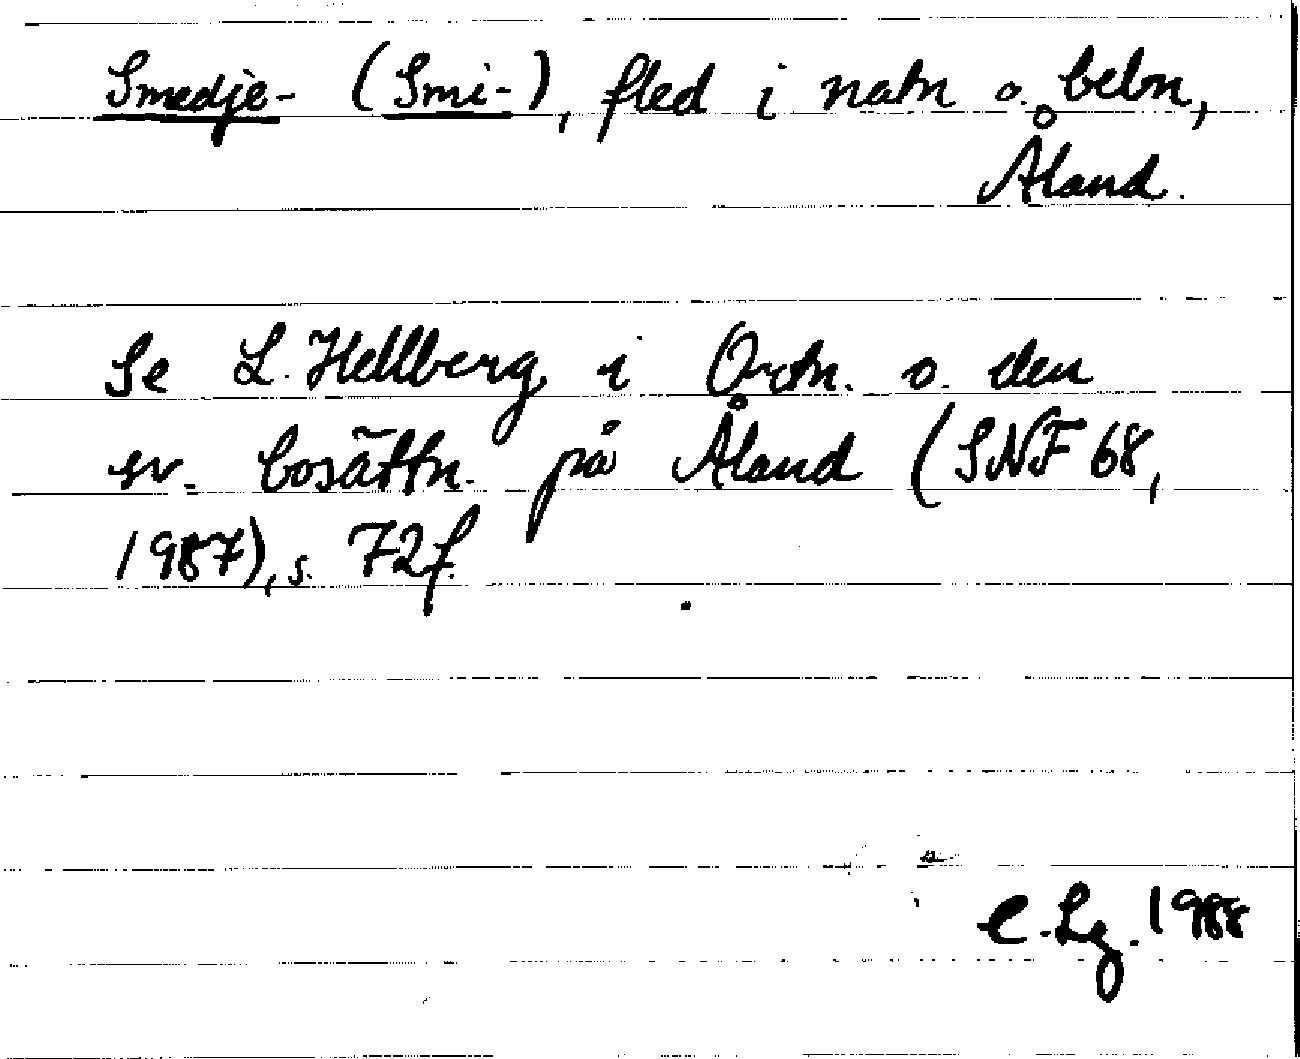 Smedje- (Smi-), fled i natn o. bebn,
Åland.
Se L. Hellberg i Ortn. o. den
sv. bosättn. på Åland (SNF 68,
1987), s. 72f.
C. Lg. 1988